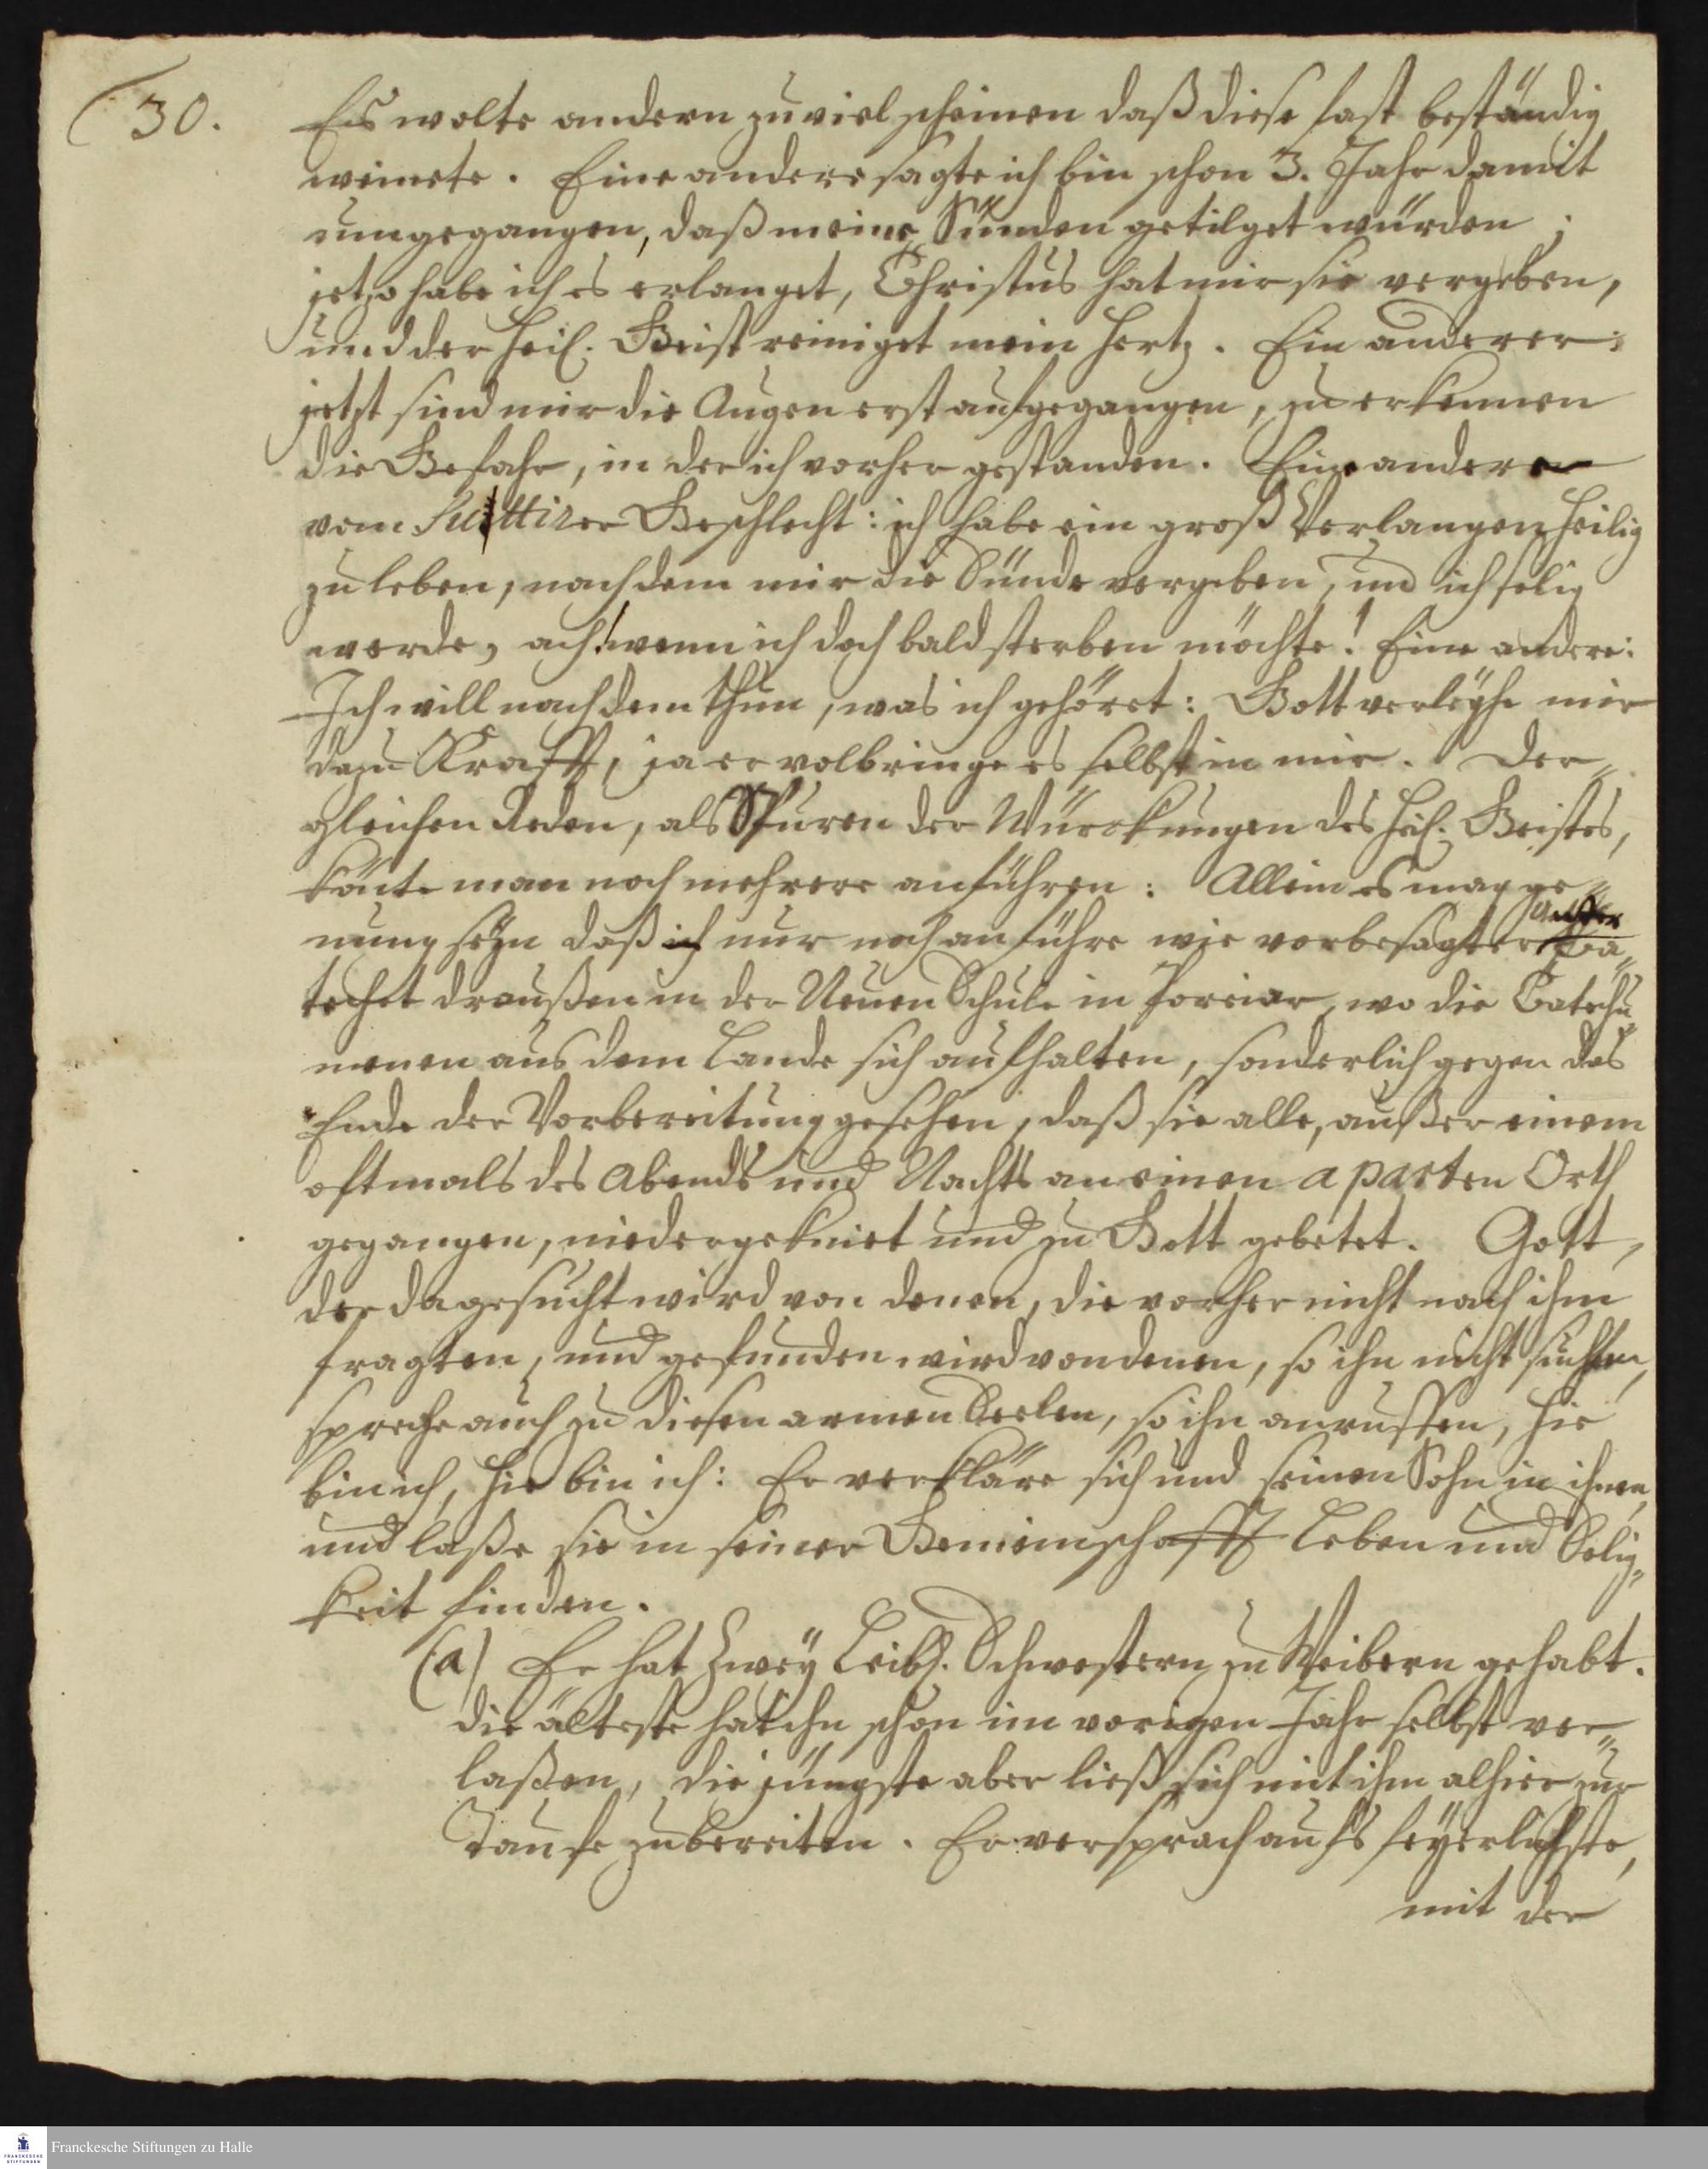 30.
Es wolte andern zu viel scheinen daß diese fast beständig
weinete. Eine andere sagte ich bin schon 3. Jahr damit
umgegangen, daß meine Sünden getilget würden;
jetzo habe ich es erlanget, Christus hat mir sie vergeben,
und der Heil. Geist reiniget mein Hertz. Ein anderer:
jetzt sind mir die Augen erst aufgegangen, zu erkennen
die Gefahr, in der ich vorher gestanden. Eine andere
vom Suttirer Geschlecht: ich habe ein groß Verlangen heilig
zu leben, nachdem mir die Sünde vergeben, und ich selig
werde, ach! wenn ich doch bald sterben möchte! Eine andere:
Ich will nach dem thun, was ich gehöret: Gott verleyhe mir
dazu Krafft, ja er volbringe es selbst in mir. Der„
gleichen Reden, als Spuren der Würckungen des Heil. Geistes,
könte man noch mehrere anführen: Allein es mag ge„
nung seyn daß ich nur noch anführe wie vorbesagter Ca„
techet draußen in der Neuen Schule in Poreiar, wo die Catechu„
menen aus dem Lande sich aufhalten, sonderlich gegen das
Ende der Vorbereitung gesehen, daß sie alle, außer einem
oftmals des Abends und Nachts an einen aparten Orth
gegangen, niedergekniet und zu Gott gebetet. Gott,
der da gesucht wird von denen, die vorher nicht nach ihm
fragten, und gefunden wird von denen, so ihn nicht suchten,
spreche auch zu diesen armen Seelen, so ihn anruffen, hie
bin ich, hie bin ich: Er verkläre sich und seinen Sohn in ihnen,
und laße sie in seiner Gemeinschafft Leben und Selig„
keit finden.
(a) Er hat zwey Leibl. Schwestern zu Weibern gehabt.
die älteste hat ihn schon im vorigen Jahr selbst ver„
laßen, die jüngste aber ließ sich mit ihm alhier zur
Taufe zubereiten. Er versprach aufs feyerlichste,
mit der
Franckesche Stiftungen zu Halle
FRANCKESCHE
STIFTUNGEN